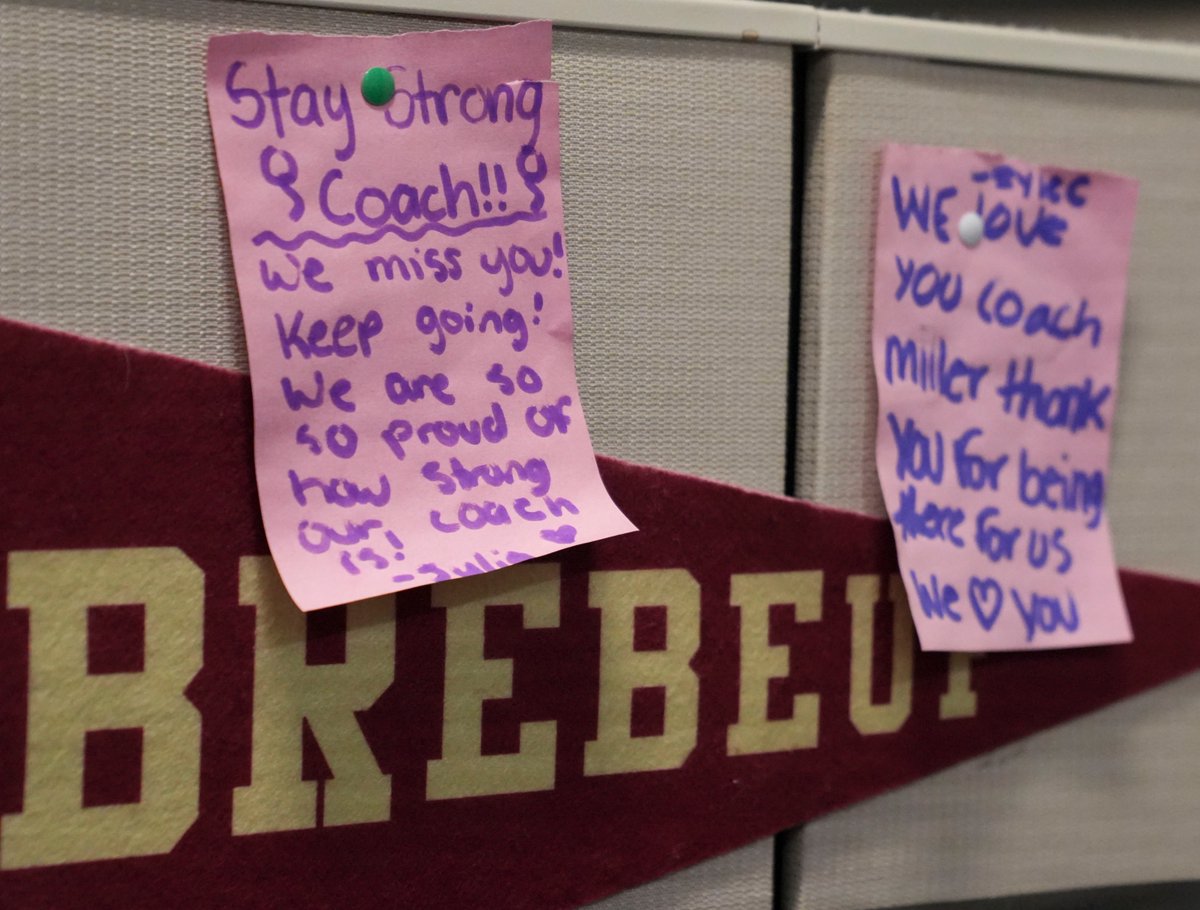 Stay Strong
Coach!!
We miss you!
Keep going!
We are so
so proud of
how strong
our coach
is! -Julia ♡
WE love
you coach
miller thank
you for being
there for us
We ♡ you
BREBEUF